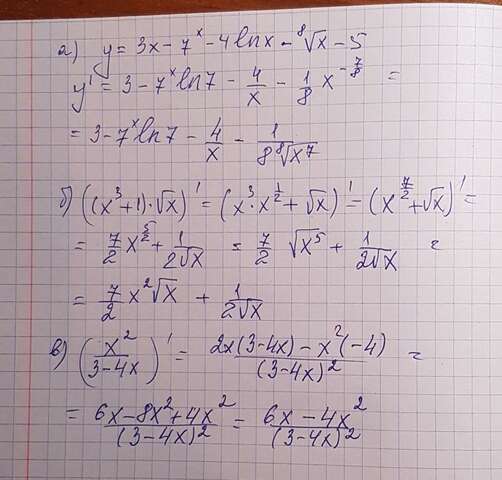 а) y = 3x - 7^x - 4lnx - ⁸√x - 5
y' = 3 - 7^x ln7 - 4/x - 1/8 x^(-7/8) =
= 3 - 7^x ln7 - 4/x - 1/(8 ⁸√(x^7))
б) ((x^3+1)·√x)' = (x^3·x^(1/2) + √x)' = (x^(7/2) + √x)' =
= 7/2 x^(5/2) + 1/(2√x) = 7/2 √(x^5) + 1/(2√x) =
= 7/2 x^2 √x + 1/(2√x)
в) (x^2/(3-4x))' = (2x(3-4x) - x^2(-4))/(3-4x)^2 =
= (6x - 8x^2 + 4x^2)/(3-4x)^2 = (6x - 4x^2)/(3-4x)^2